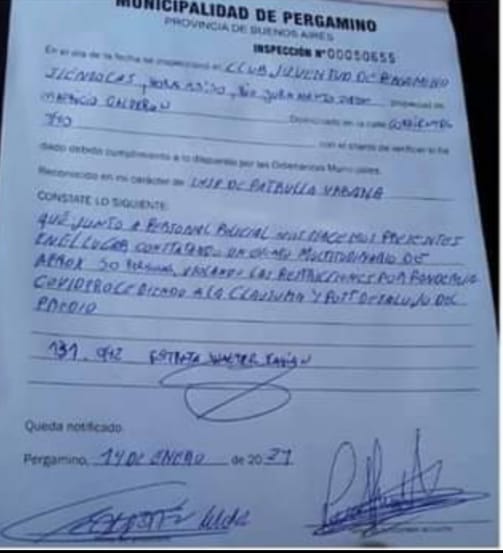 MUNICIPALIDAD DE PERGAMINO
PROVINCIA DE BUENOS AIRES
INSPECCIÓN Nº 00050655
En el día de la fecha se inspeccionó el CLUB JUVENTUD DE PERGAMINO
SIENDO LAS, HORA propiedad de
MAURICIO CALDERON Domiciliado en la calle CORRIENTES
con el objeto de verificar si ha
dado debido cumplimiento a lo dispuesto por las Ordenanzas Municipales.
Reconocido en mi carácter de DE PATRULLA URBANA
CONSTATE LO SIGUIENTE:
QUE JUNTO A PERSONAL POLICIAL NOS HACEMOS PRESENTES
EN EL LUGAR CONSTATANDO UN MULTITUDINARIO DE
APROX 50 PERSONAS, VIOLANDO LAS RESTRICCIONES POR PANDEMIA
COVID PROCEDIENDO A LA CLAUSURA Y DESALUJO DEL
PREDIO
WALTER
Queda notificado
Pergamino, 14 DE ENERO de 20 21